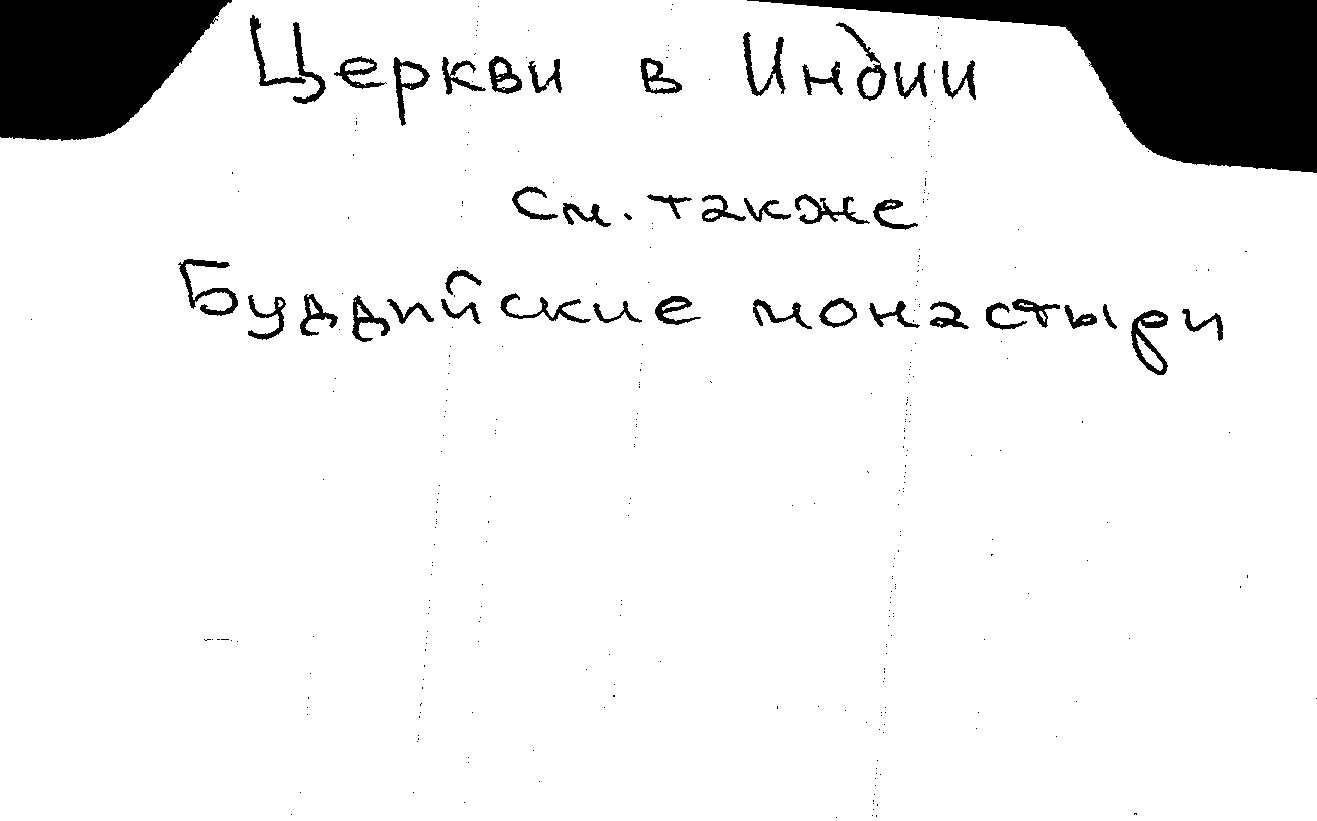 Церкви в Индии
См. также
Буддийские монастыри